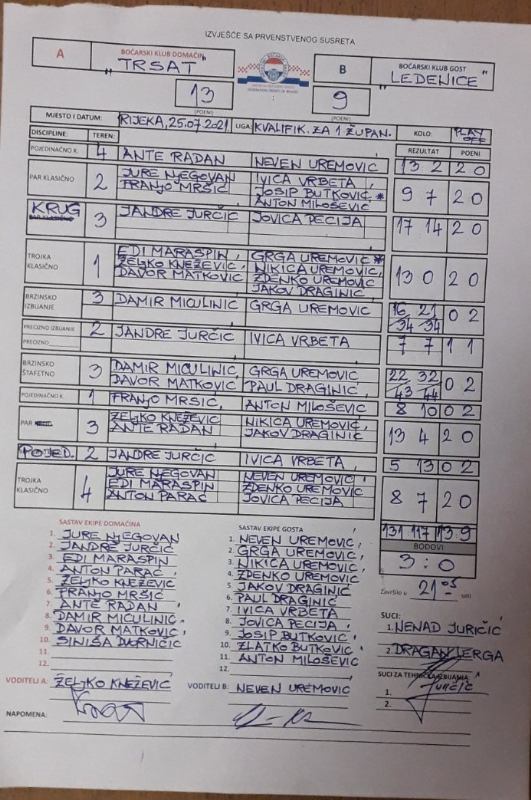 IZVJEŠĆE SA PRVENSTVENOG SUSRETA
A BOĆARSKI KLUB DOMAĆIN B BOĆARSKI KLUB GOST
"TRSAT" "LEDENICE"
13 9
(POENI) (POENI)
MJESTO I DATUM: RIJEKA, 25.07.2021 LIGA: KVALIFIK. ZA 1 ŽUPAN. KOLO: PLAY OFF
DISCIPLINE: TEREN: REZULTAT POENI
POJEDINAČNO K. 4 ANTE RADAN NEVEN UREMOVIĆ 13 2 2 0
PAR KLASIČNO 2 JURE NJEGOVAN IVICA VRBETA, 9 7 2 0
FRANJO MRŠIĆ JOSIP BUTKOVIĆ, *
ANTON MILOŠEVIĆ
KRUG 3 JANDRE JURČIĆ JOVICA PECIJA 17 14 2 0
TROJKA KLASIČNO 1 EDI MARASPIN, GRGA UREMOVIĆ * 13 0 2 0
ŽELJKO KNEŽEVIĆ, NIKICA UREMOVIĆ,
DAVOR MATKOVIĆ ZDENKO UREMOVIĆ
JAKOV DRAGINIĆ,
BRZINSKO IZBIJANJE 3 DAMIR MICULINIĆ GRGA UREMOVIĆ 16 21 0 2
34 34
PRECIZNO IZBIJANJE 2 JANDRE JURČIĆ IVICA VRBETA 7 7 1 1
PRECIZNO
BRZINSKO ŠTAFETNO 3 DAMIR MICULINIĆ, GRGA UREMOVIĆ 22 32 0 2
DAVOR MATKOVIĆ PAUL DRAGINIĆ, 43 44
POJEDINAČNO K. 1 FRANJO MRŠIĆ, ANTON MILOŠEVIĆ 8 10 0 2
PAR 3 ŽELJKO KNEŽEVIĆ NIKICA UREMOVIĆ, 13 4 2 0
ANTE RADAN JAKOV DRAGINIĆ,
POJED. 2 JANDRE JURČIĆ IVICA VRBETA 5 13 0 2
TROJKA KLASIČNO 4 JURE NJEGOVAN NEVEN UREMOVIĆ 8 7 2 0
EDI MARASPIN ZDENKO UREMOVIĆ
ANTON PARAĆ JOVICA PECIJA
131 117 13 9
SASTAV EKIPE DOMAĆINA SASTAV EKIPE GOSTA BODOVI
3:0
1. JURE NJEGOVAN 1. NEVEN UREMOVIĆ,
2. JANDRE JURČIĆ 2. GRGA UREMOVIĆ,
3. EDI MARASPIN 3. NIKICA UREMOVIĆ,
4. ANTON PARAĆ, 4. ZDENKO UREMOVIĆ
5. ŽELJKO KNEŽEVIĆ 5. JAKOV DRAGINIĆ
6. FRANJO MRŠIĆ 6. PAUL DRAGINIĆ
7. ANTE RADAN 7. IVICA VRBETA
8. DAMIR MICULINIĆ 8. JOVICA PECIJA,
9. DAVOR MATKOVIĆ, 9. JOSIP BUTKOVIĆ,
10. SINIŠA DVORNIČIĆ 10. ZLATKO BUTKOVIĆ
11. 11. ANTON MILOŠEVIĆ
12. 12.
Završilo u 21 05 sati
SUCI:
1. NENAD JURIČIĆ
2. DRAGAN LERGA
SUCI ZA TEHNIČKA IZBIJANJA:
1.
2.
VODITELJ A: ŽELJKO KNEŽEVIĆ VODITELJ B: NEVEN UREMOVIĆ
NAPOMENA: